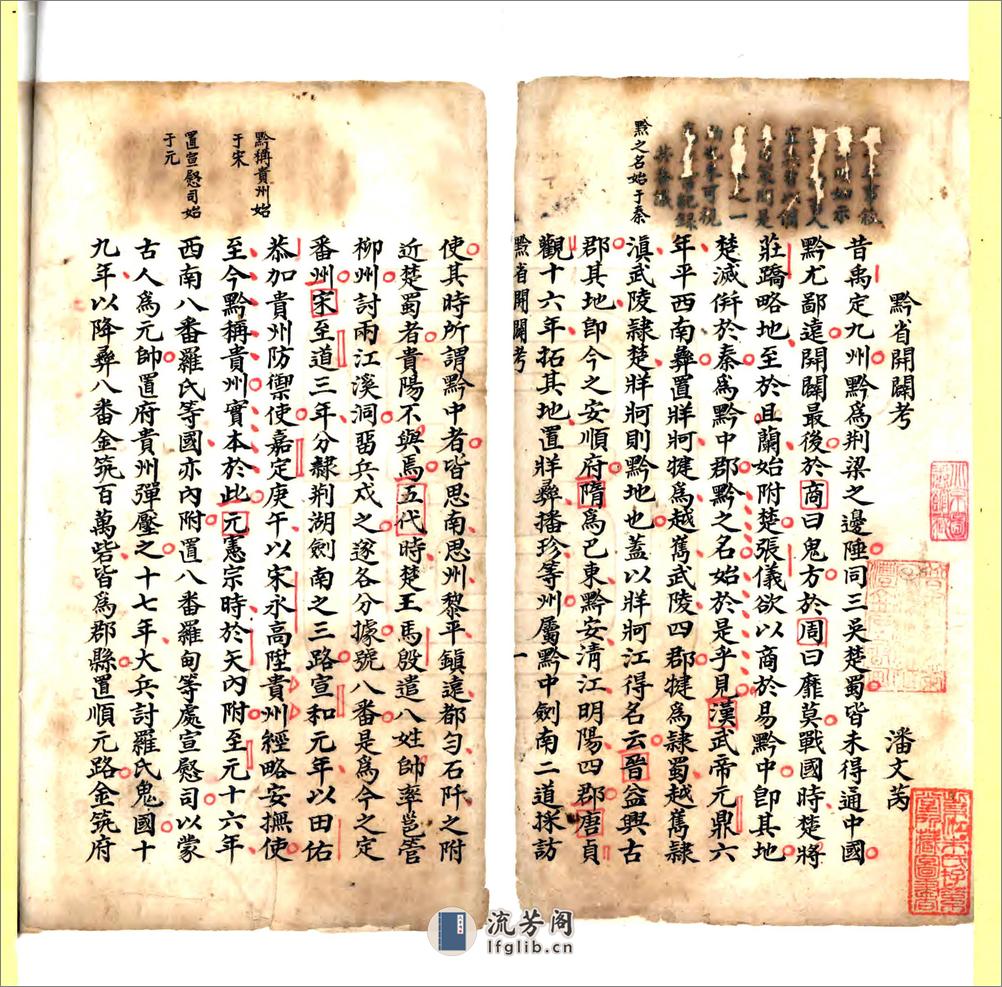 黔省開闢考
潘文芮
昔禹定九州黔爲荆梁之邊陲同三吳楚蜀皆未得通中國
黔尤鄙遠開闢最後於商曰鬼方於周曰靡莫戰國時楚將
莊蹻略地至於且蘭始附楚張儀欲以商於易黔中卽其地
楚滅併於秦爲黔中郡黔之名始於是乎見漢武帝元鼎六
年平西南彝置牂牁犍爲越嶲武陵四郡犍爲隷蜀越嶲隷
滇武陵隷楚牂牁則黔地也蓋以牂牁江得名云晉益興古
郡其地卽今之安順府隋爲巴東黔安清江明陽四郡唐貞
觀十六年拓其地置牂彝播珍等州屬黔中劍南二道採訪
黔之名始于秦
黔省開闢考
一
使其時所謂黔中者皆思南思州黎平鎮遠都勻石阡之附
近楚蜀者貴陽不與焉五代時楚王馬殷遣八姓帥率邕管
柳州討兩江溪洞畱兵戍之遂各分據號八番是爲今之定
番州宋至道三年分隷荆湖劍南之三路宣和元年以田佑
恭加貴州防禦使嘉定庚午以宋永高陞貴州經略安撫使
至今黔稱貴州實本於此元憲宗時於矢內附至元十六年
西南八番羅氏等國亦內附置八番羅甸等處宣慰司以蒙
古人爲元帥置府貴州彈壓之十七年大兵討羅氏鬼國十
九年以降彝八番金筑百萬砦皆爲郡縣置順元路金筑府
黔稱貴州始
于宋
置宣慰司始
于元
流芳阁
lfglib.cn